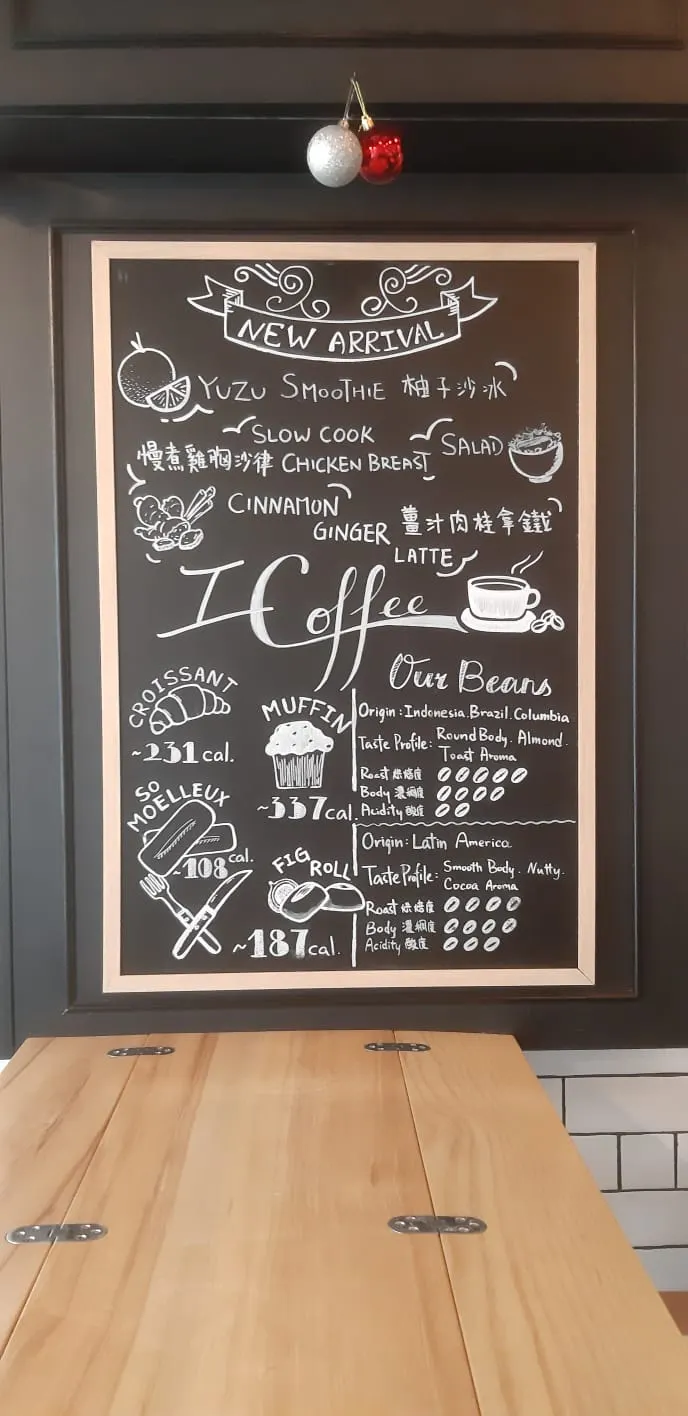 NEW ARRIVAL
YUZU SMOOTHIE 柚子沙冰
SLOW COOK
慢煮雞胸沙律 CHICKEN BREAST SALAD
CINNAMON
GINGER 薑汁肉桂拿鐵
LATTE
I Coffee
CROISSANT
~231 cal.
MUFFIN
~337 cal.
SO
MOELLEUX
~108 cal.
FIG ROLL
~187 cal.
Our Beans
Origin: Indonesia. Brazil. Columbia
Taste Profile: Round Body. Almond.
Toast Aroma
Roast 烘焙度
Body 濃稠度
Acidity 酸度
Origin: Latin America
Taste Profile: Smooth Body. Nutty.
Cocoa Aroma
Roast 烘焙度
Body 濃稠度
Acidity 酸度